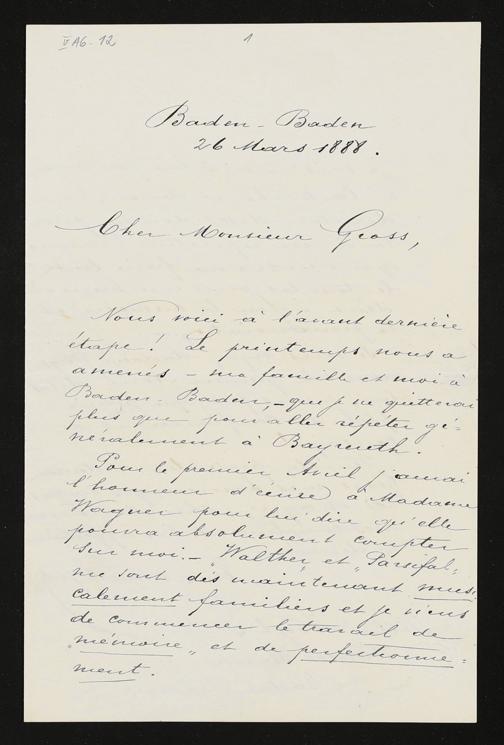 V A6-12
1
Baden-Baden
26 Mars 1888.
Cher Monsieur Gross,
Nous voici à l'avant dernière
étape! Le printemps nous a
amenés – ma famille et moi à
Baden-Baden, – que je ne quitterai
plus que pour aller répéter gé=
néralement à Bayreuth.
Pour le premier Avril j'aurai
l'honneur d'écrire à Madame
Wagner pour lui dire qu'elle
pourra absolument compter
sur moi. – "Walther" et "Parsifal"
me sont dès maintenant musi-
calement familiers et je viens
de commencer le travail de
"mémoire" et de perfectionne=
ment.